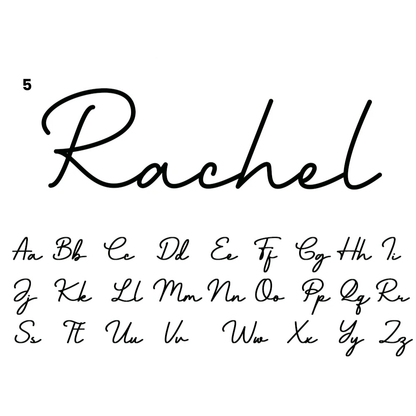 5
Rachel
Aa Bb Cc Dd Ee Ff Gg Hh Ii
Jj Kk Ll Mm Nn Oo Pp Qq Rr
Ss Tt Uu Vv Ww Xx Yy Zz